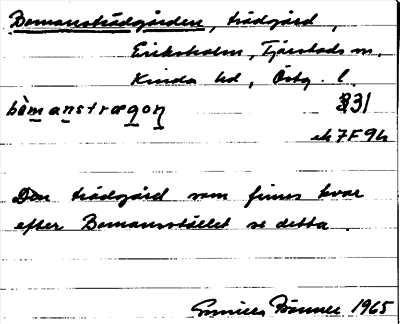 Bomansträdgården, trädgård,
Eriksholm, Tjärstads sn.
Kinda hd, Östg. l.
bòmanstrægon 331
ek 7F9h
Den trädgård som finns kvar
efter Bomansstället se detta.
Gunilla 1965